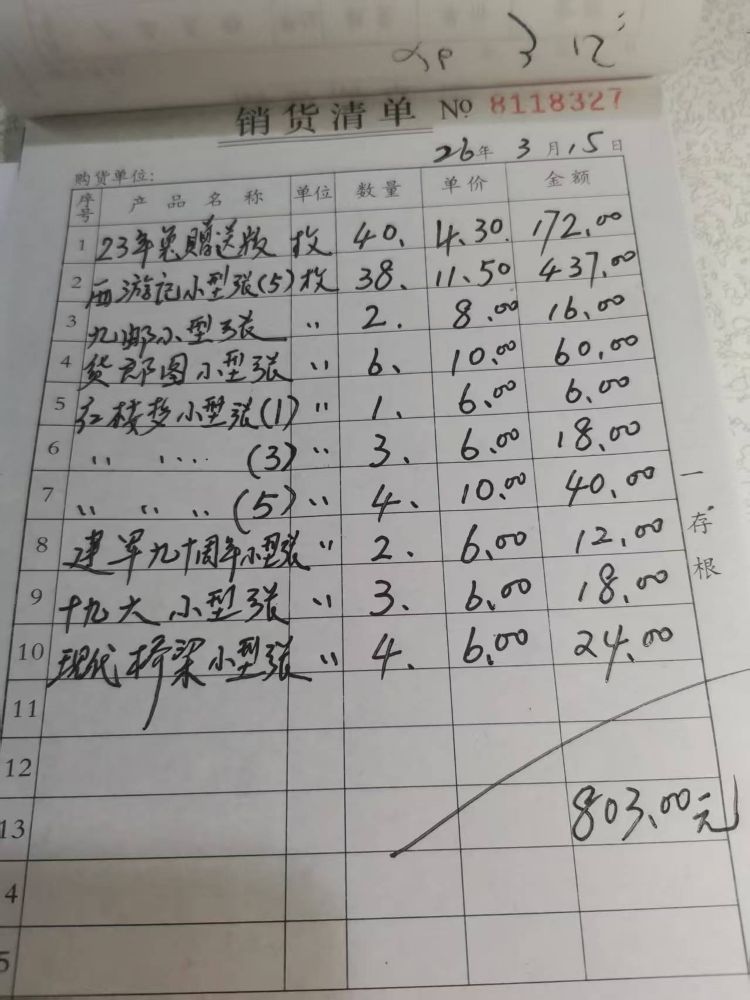 3 12
销货清单 No 8118327
26年 3月15日
购货单位:
序号 产品名称 单位 数量 单价 金额
1 23年兔赠送版 枚 40. 4.30. 172.00
2 西游记小型张(5) 枚 38. 11.50 437.00
3 九邮小型张 〃 2. 8.00 16.00
4 货郎图小型张 〃 6. 10.00 60.00
5 红楼梦小型张(1) 〃 1. 6.00 6.00
6 〃 〃〃 (3) 〃 3. 6.00 18.00
7 〃 〃 〃 (5) 〃 4. 10.00 40.00
8 建军九十周年小型张 〃 2. 6.00 12.00
9 十九大小型张 〃 3. 6.00 18.00
10 现代桥梁小型张 〃 4. 6.00 24.00
11
12
13 803.00元
4
5
一存根